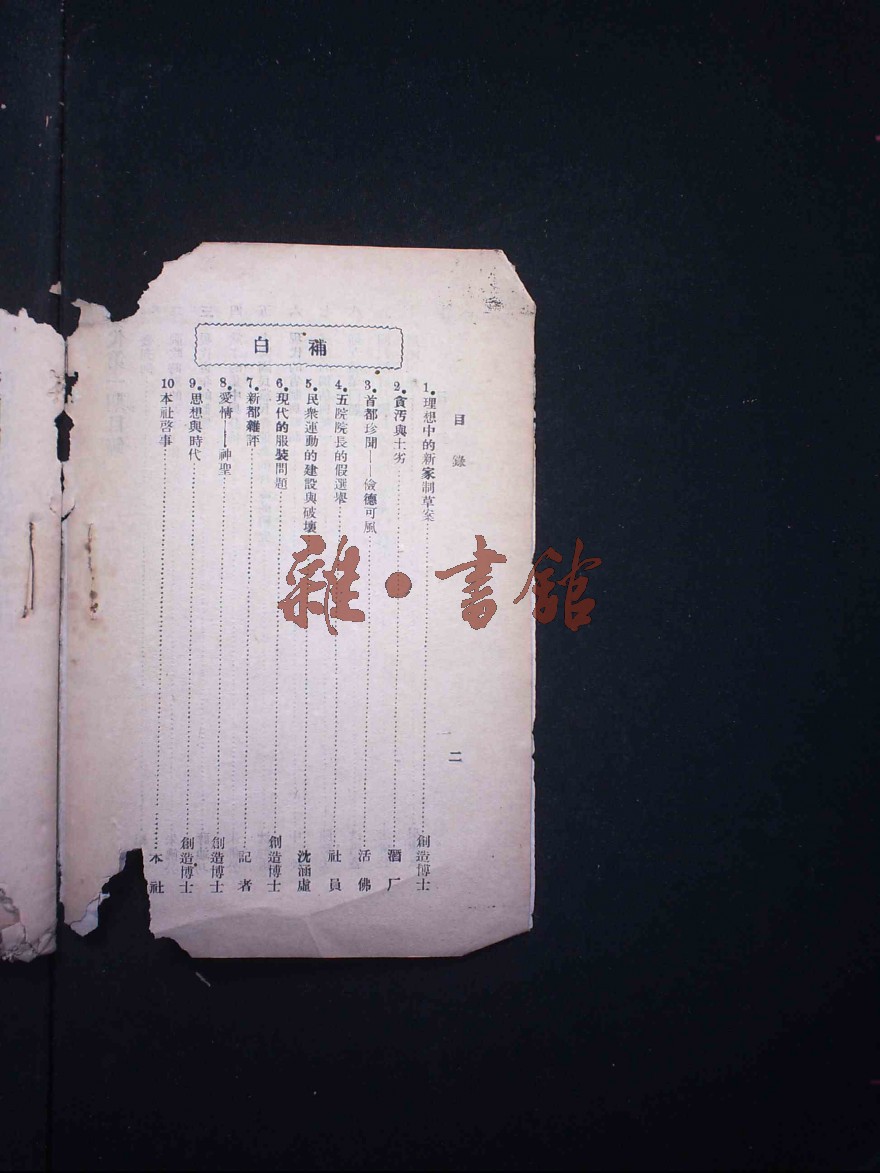 目錄 二
補白
1.理想中的新家制草案……創造博士
2.貪汚與土劣……酒厂
3.首都珍聞——儉德可風……活佛
4.五院院長的假選舉……社員
5.民衆運動的建設與破壞……沈涵虛
6.現代的服裝問題……創造博士
7.新都雜評……記者
8.愛情——神聖……創造博士
9.思想與時代……創造博士
10本社啓事……本社
雜·書館